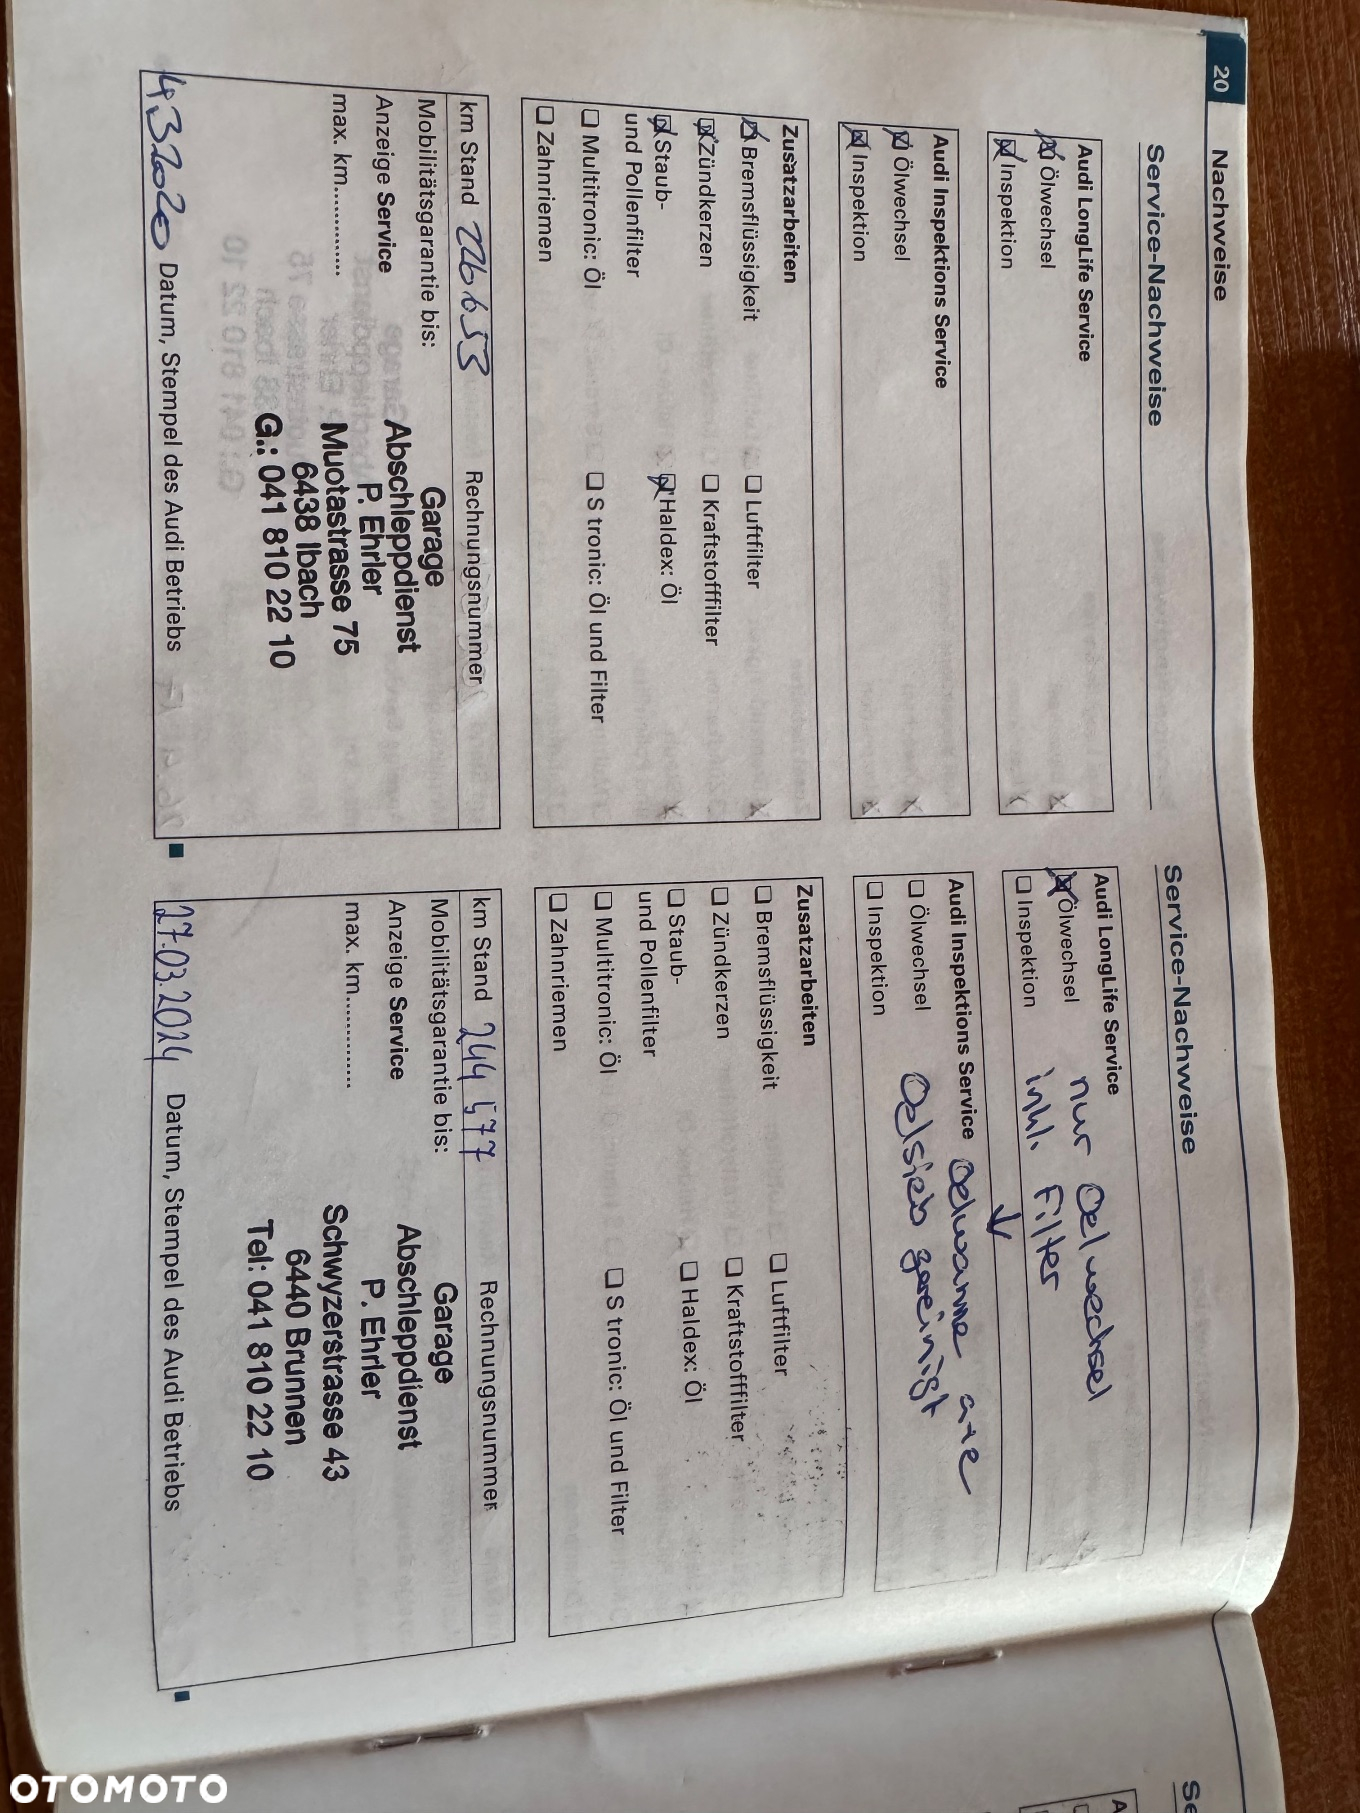 20 Nachweise
Service-Nachweise
Audi LongLife Service
☒ Ölwechsel
☒ Inspektion
Audi Inspektions Service
☒ Ölwechsel
☒ Inspektion
Zusatzarbeiten
☒ Bremsflüssigkeit ☐ Luftfilter
☒ Zündkerzen ☐ Kraftstofffilter
☒ Staub- ☒ Haldex: Öl
und Pollenfilter
☐ Multitronic: Öl ☐ S tronic: Öl und Filter
☐ Zahnriemen
km Stand 226653 Rechnungsnummer
Mobilitätsgarantie bis:
Anzeige Service
max. km.............
Garage
Abschleppdienst
P. Ehrler
Muotastrasse 75
6438 Ibach
G.: 041 810 22 10
4.3 2020 Datum, Stempel des Audi Betriebs
Service-Nachweise
Audi LongLife Service
☒ Ölwechsel nur Oelwechsel
☐ Inspektion inkl. Filter
Audi Inspektions Service Oelwanne
☐ Ölwechsel Oelsieb gereinigt
☐ Inspektion
Zusatzarbeiten
☐ Bremsflüssigkeit ☐ Luftfilter
☐ Zündkerzen ☐ Kraftstofffilter
☐ Staub- ☐ Haldex: Öl
und Pollenfilter
☐ Multitronic: Öl ☐ S tronic: Öl und Filter
☐ Zahnriemen
km Stand 244 577 Rechnungsnummer
Mobilitätsgarantie bis:
Anzeige Service
max. km.............
Garage
Abschleppdienst
P. Ehrler
Schwyzerstrasse 43
6440 Brunnen
Tel: 041 810 22 10
27.03.2024 Datum, Stempel des Audi Betriebs
OTOMOTO